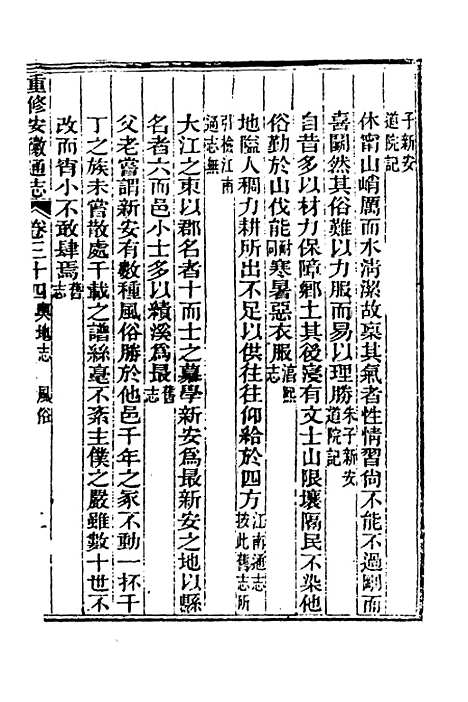 子新安
道院記
休甯山峭厲而水淸潔故稟其氣者性情習尙不能不過剛而
喜鬭然其俗難以力服而易以理勝朱子新安道院記
自昔多以材力保障鄉土其後寖有文士山限壤隔民不染他
俗勤於山伐能寒暑惡衣服
地隘人稠力耕所出不足以供往往仰給於四方江南通志按此舊志所
引檢江南
通志無
大江之東以郡名者十而士之慕學新安爲最新安之地以縣
名者六而邑小士多以績溪爲最舊志
父老嘗謂新安有數種風俗勝於他邑千年之冢不動一抔千
丁之族未嘗散處千載之譜絲毫不紊主僕之嚴雖數十世不
改而宵小不敢肆焉舊志
重修安徽通志 卷三十四輿地志 風俗